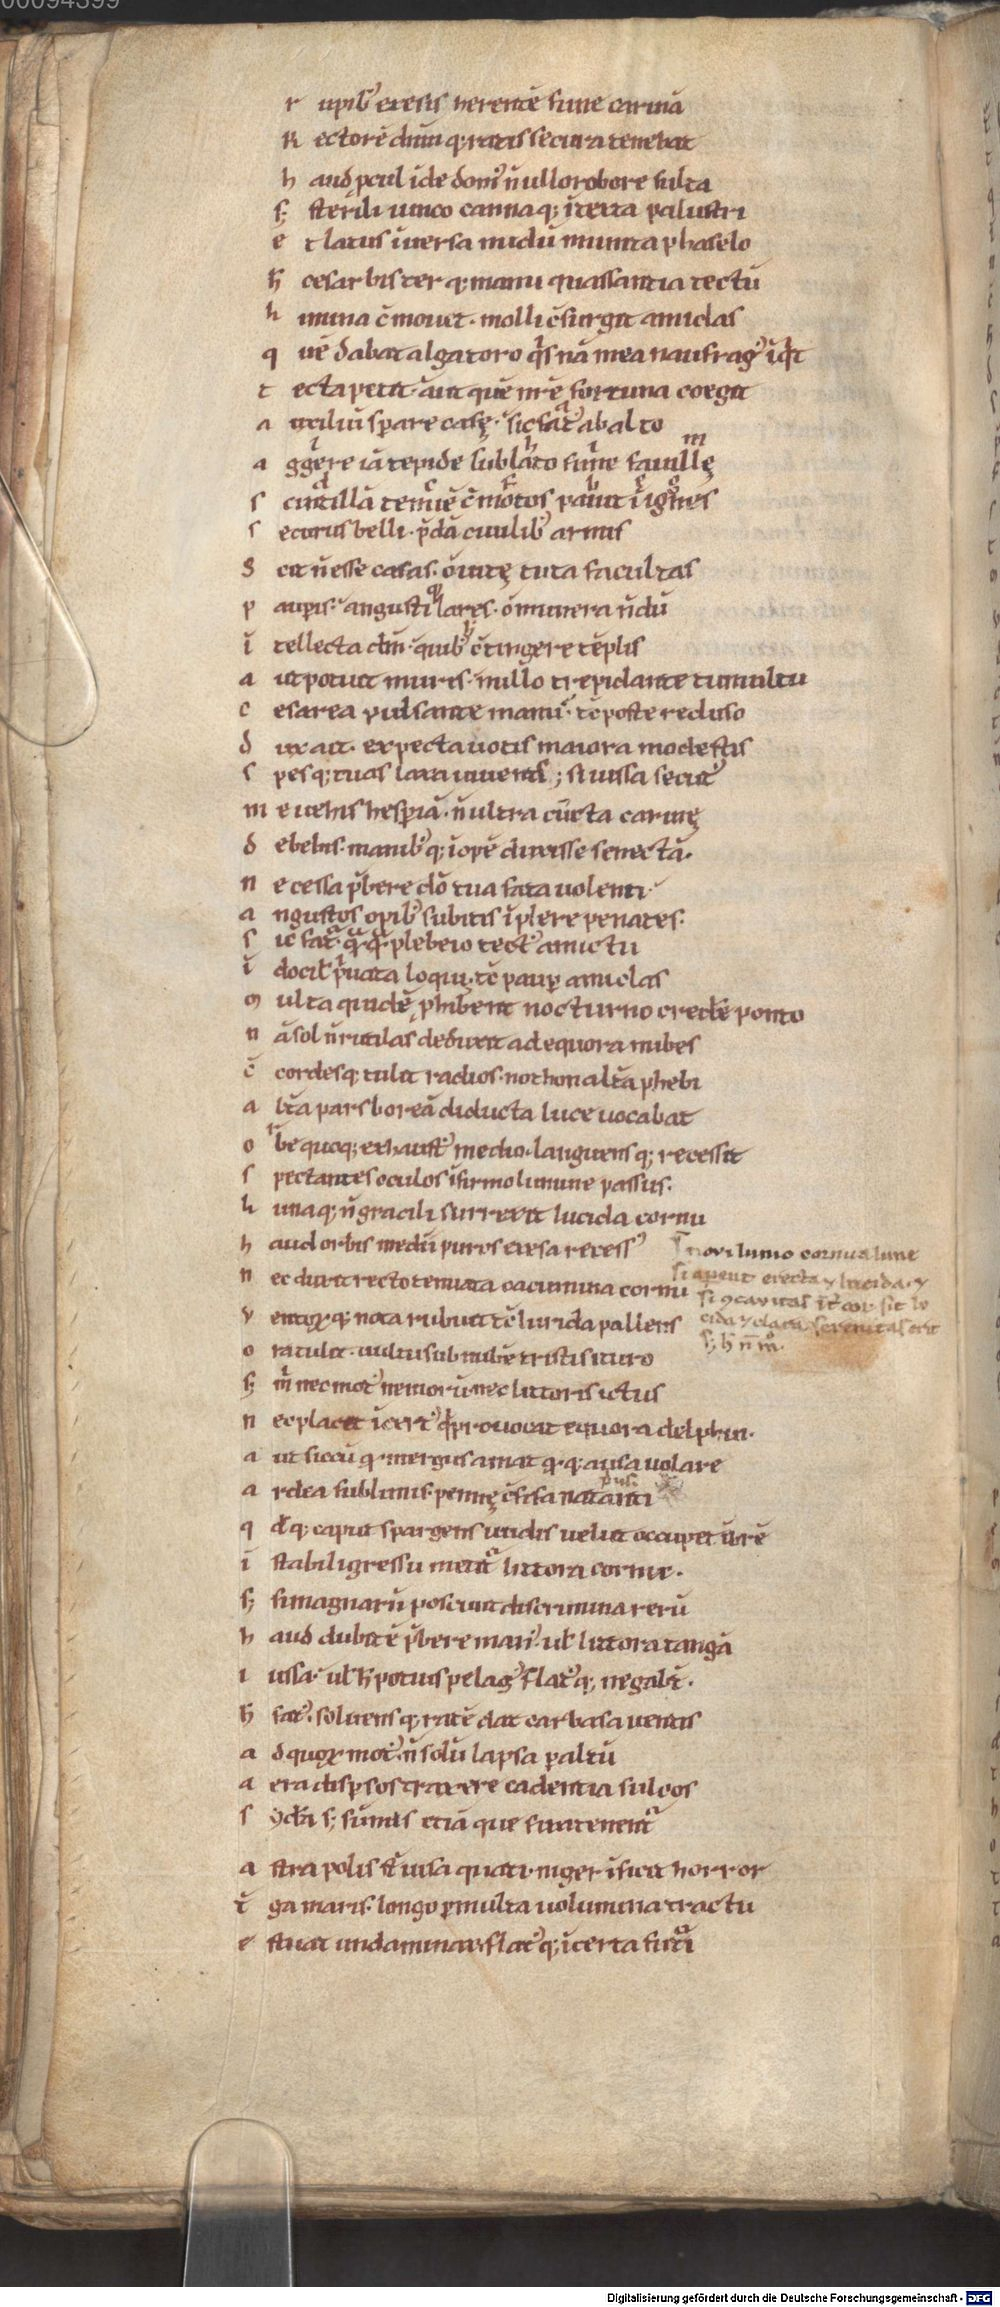 00094399
r upib' exesis herentē fune carinā
R ectorē dnm q; ratis secura tenebat
h aud pcul īde dom' n̄ ullo robore fulta
s; sterili iunco cannaq; ītexta palustri
e t latus īuersa nudū munita phaselo
h̄ cesar bis terq; manu quassantia tectū
l imina c̄mouet. molli c̄surgit amiclas
q uē dabat alga toro q̄snā mea naufrag' īq̄t
t ecta petit. aut quē nr̄ē fortuna coegit
a uxiliū sp̄are casę. sic fat' ab alto
a ggere iā tepide sublato fune fauillę
s cintillā tenuē c̄motos pauit ī ignes
s ecurus belli. p̄dā ciuilib' armis
S cit n̄ esse casas. ō uitę tuta facultas
p aup̄is. angustiq; lares. ō munera n̄dū
ī tellecta dm̄. quib' c̄tingere tēplis
a ut potuit muris. nullo trepidante tumultu
c esarea pulsante manu. tc̄ poste recluso
d ux ait. expecta uotis maiora modestis
s pesq; tuas laxa iuuenis; si iussa secut'
m e uehis hesp̄iā. n̄ ultra cūcta carinę
d ebebis. manib'q; īopē duxisse senectā.
n e cessa p̄bere dō tua fata uolenti
a ngustos opib' subitis īplere penates.
s ic fat'. q̄q̄ plebeio tect' amictu
ī docil' p̄uata loqui. tc̄ paup̄ amiclas
m ulta quidē phibent nocturno credē ponto
n ā sol n̄ rutilas deduxit ad equora nubes
c̄ cordesq; tulit radios. nothon altā phebi
a ltā pars boreā diducta luce uocabat
o rbe quoq; exhaust' medio. languensq; recessit
s pectantes oculos īfirmo lumine passus.
l unaq; n̄ gracili surrexit lucida cornu
h aud orbis mediı̄ puros exesa recess'
n ec duxit recto tenuata cacumina cornu
v entoꝝq; nota rubuit tc̄ lurida pallens
o ra tulit. uultu sub nubē tristis ituro
s; m̄ nec mot' nemorū. nec littoris ictus
n ec placet īcert' q̄ prouocat equora delphin.
a ut siccū q̄ mergus amat q̄q; ausa uolare
a rdea sublimis. pennę c̄fisa natanti
q dq; caput spargens undis uelut occupet ībrē
ī stabili gressu metit' littora cornix.
s; si magnarū poscunt discrimina rerū
h aud dubitē p̄bere man'. ul' littora tangā
i ussa. ul' h̄ potius pelag' flat'q; negabt̄.
h̄ fat'. soluensq; ratē dat carbasa uentis
a d quoꝝ mot'. n̄ solū lapsa p altū
a era disp̄sos traxere cadentia sulcos
s ydā s; sūmis etiā que fixa tenent'
a stra polis st̄ uisa quati. niger īficit horror
t̄ ga maris. longo p multa uolumina tractu
e stuat unda minax. flat'q; īcerta futi
novilunio cornua lune
si apeut erecta ⁊ lucida. ⁊
si ꝯcavitas īt' cor. sit lu
cida ⁊ clara. serenitas erit
s; h̄ n̄ m°.
Digitalisierung gefördert durch die Deutsche Forschungsgemeinschaft - DFG